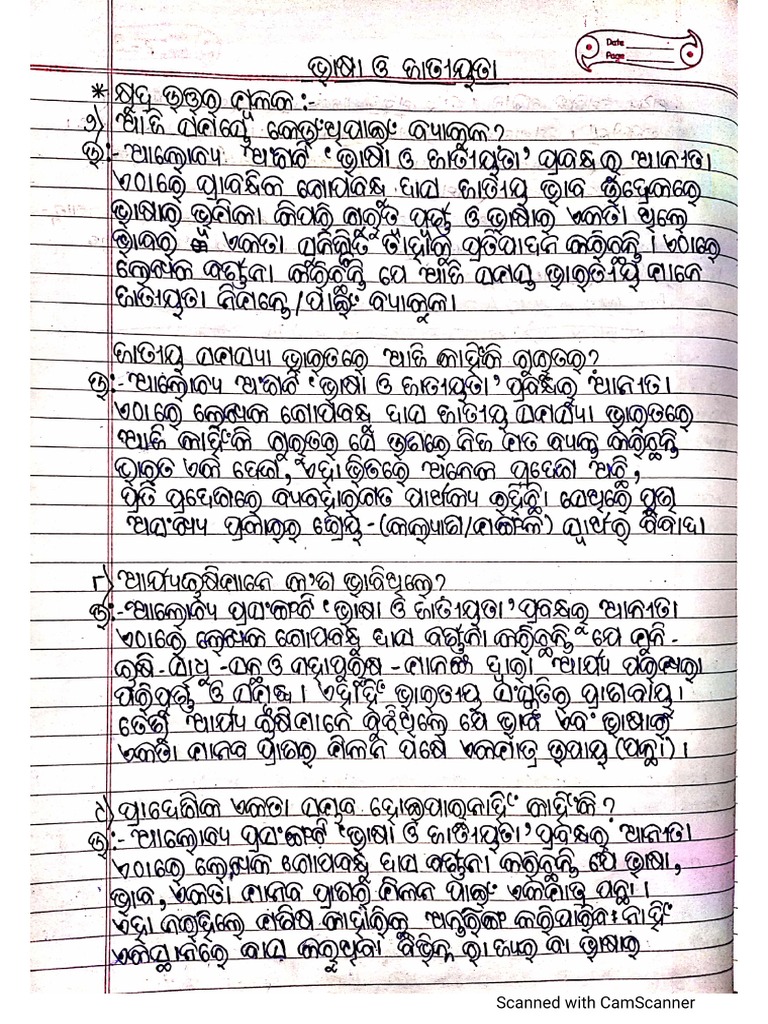 Date
Page
ଭାଷା ଓ ଜାତୀୟତା
* କ୍ଷୁଦ୍ର ଉତ୍ତର ମୂଳକ :-
୨) ଆଜି ସମସ୍ତେ କେଉଁଥିପାଇଁ ବ୍ୟାକୁଳ?
ଉ:- ଆଲୋଚ୍ୟ ଅଂଶଟି 'ଭାଷା ଓ ଜାତୀୟତା' ପ୍ରବନ୍ଧର ଆନୀତ।
ଏଠାରେ ପ୍ରାବନ୍ଧିକ ଗୋପବନ୍ଧୁ ଦାସ ଜାତୀୟ ଭାବ ଉଦ୍ରେକରେ
ଭାଷାର ଭୂମିକା କିପରି ଗୁରୁତ୍ୱ ପୂର୍ଣ୍ଣ ଓ ଭାଷାର ଏକତା ଥିଲେ
ଭାବର ଏକତା ପ୍ରତିଷ୍ଠିତ ତାହାକୁ ପ୍ରତିପାଦନ କରିଛନ୍ତି । ଏଠାରେ
ଲେଖକ ବର୍ଣ୍ଣନା କରିଛନ୍ତି ଯେ ଆଜି ସମସ୍ତ ଭାରତୀୟ ମାନେ
ଜାତୀୟତା ନିମନ୍ତେ/ପାଇଁ ବ୍ୟାକୁଳ।
ଜାତୀୟ ସମସ୍ୟା ଭାରତରେ ଆଜି କାହିଁକି ଗୁରୁତର?
ଉ:- ଆଲୋଚ୍ୟ ଅଂଶଟି 'ଭାଷା ଓ ଜାତୀୟତା' ପ୍ରବନ୍ଧରୁ ଆନୀତ।
ଏଠାରେ ଲେଖକ ଗୋପବନ୍ଧୁ ଦାସ ଜାତୀୟ ସମସ୍ୟା ଭାରତରେ
ଆଜି କାହିଁକି ଗୁରୁତର ସେ ଉପରେ ନିଜ ମତ ବ୍ୟକ୍ତ କରିଛନ୍ତି
ଭାରତ ଏକ ଦେଶ, ଏହା ଭିତରେ ଅନେକ ପ୍ରଦେଶ ଅଛି,
ପ୍ରତି ପ୍ରଦେଶରେ ବ୍ୟବହାରଗତ ପାର୍ଥକ୍ୟ ରହିଛି। ସେଥିରେ ପୁଣି
ଅସଂଖ୍ୟ ପ୍ରକାରର ଶ୍ରେୟ - (କଲ୍ୟାଣ/ମଙ୍ଗଳ) ସ୍ୱାର୍ଥର ବିବାଦ।
୮) ଆର୍ଯ୍ୟଋଷିମାନେ କ'ଣ ଭାବିଥିଲେ?
ଉ:- ଆଲୋଚ୍ୟ ପ୍ରସଂଙ୍ଗଟି 'ଭାଷା ଓ ଜାତୀୟତା' ପ୍ରବନ୍ଧରୁ ଆନୀତ।
ଏଠାରେ ଲେଖକ ଗୋପବନ୍ଧୁ ଦାସ ବର୍ଣ୍ଣନା କରିଛନ୍ତି ଯେ ମୁନି -
ଋଷି - ସାଧୁ - ସନ୍ଥ ଓ ମହାପୁରୁଷ - ମାନଙ୍କ ଦ୍ୱାରା ଆର୍ଯ୍ୟ ପରମ୍ପରା
ପରିପୂର୍ଣ୍ଣ ଓ ସମୃଦ୍ଧ । ଏହାହିଁ ଭାରତୀୟ ସଂସ୍କୃତିର ପ୍ରାଣବାୟୁ।
ତେଣୁ ଆର୍ଯ୍ୟ ଋଷିମାନେ ବୁଝିଥିଲେ ଯେ ଭାବ ଏବଂ ଭାଷାର
ଏକତା ମାନବ ପ୍ରାଣର ମିଳନ ପକ୍ଷେ ଏକମାତ୍ର ଉପାୟ (ପନ୍ଥା) ।
୯) ପ୍ରାଦେଶିକ ଏକତା ସମ୍ଭବ ହୋଇପାରୁନାହିଁ କାହିଁକି ?
ଉ:- ଆଲୋଚ୍ୟ ପ୍ରସଂଙ୍ଗଟି 'ଭାଷା ଓ ଜାତୀୟତା' ପ୍ରବନ୍ଧରୁ ଆନୀତ।
ଏଠାରେ ଲେଖକ ଗୋପବନ୍ଧୁ ଦାସ ବର୍ଣ୍ଣନା କରିଛନ୍ତି ଯେ ଭାଷା,
ଭାବ, ଏକତା ମାନବ ପ୍ରାଣର ମିଳନ ପାଇଁ ଏକମାତ୍ର ପନ୍ଥା।
ଏହା ନରହିଲେ ମଣିଷ କାହାରିକୁ କରିପାରିବ ନାହିଁ
ଏକସ୍ଥାନରେ ବାସ କରୁଥିବା ବିଭିନ୍ନ ରାଜ୍ୟର ବା ଭାଷାର
Scanned with CamScanner